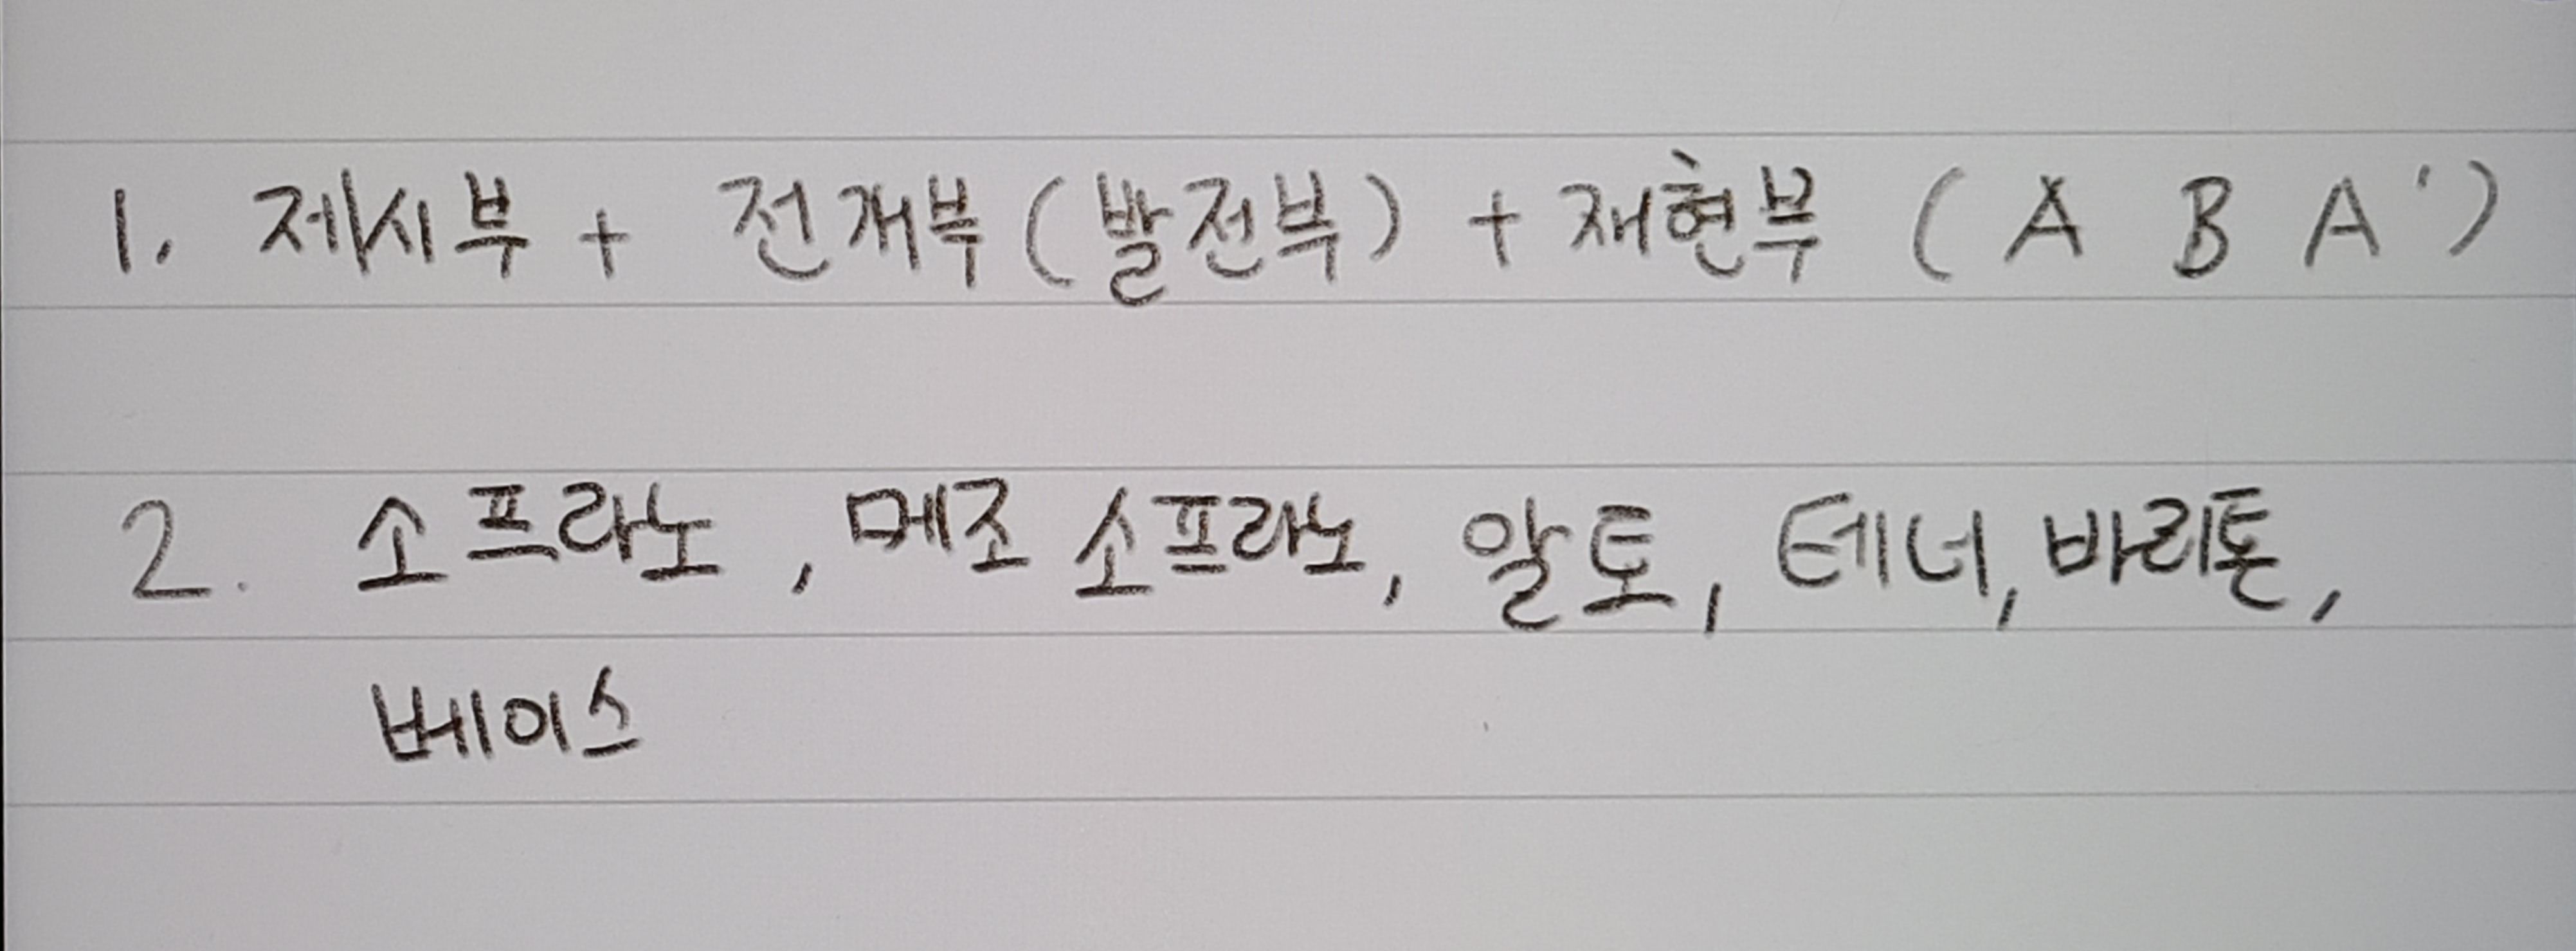 1. 제시부 + 전개부 (발전부) + 재현부 ( A B A' )
2. 소프라노, 메조 소프라노, 알토, 테너, 바리톤,
베이스